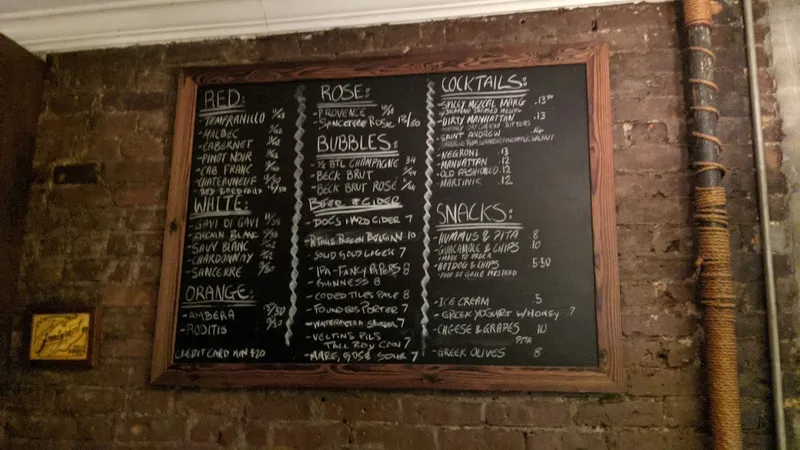 RED:
-TEMPRANILLO
-MALBEC
-CABERNET
-PINOT NOIR
-CAB FRANC
-CHATEAUNEUF
-RED BORDEAUX
WHITE:
-GAVI DI GAVI
-CHENIN BLANC
-SAUV BLANC
-CHARDONNAY
-SANCERRE
ORANGE:
-AMBERA
-RODITIS
CREDIT CARD MIN $20
ROSE:
-PROVENCE
-SANCERRE ROSE 13/50
BUBBLES:
-½ BTL CHAMPAGNE 34
-BECK BRUT
-BECK BRUT ROSÉ
BEER & CIDER
-DOCS HARD CIDER 7
BELGIAN 10
-SOLID GOLD LAGER 7
-IPA-FANCY PAPERS 8
-GUINNESS 8
-CODED TILES PALE 8
-FOUNDERS PORTER 7
-WATERMELON 7
-VELTINS PILS
TALL BOY CAN 7
GOSE SOUR 7
COCKTAILS:
-SPICY MEZCAL MARG .13
-DIRTY MANHATTAN .13
BITTERS
-SAINT ANDREW
-NEGRONI .13
-MANHATTAN .12
-OLD FASHIONED .12
-MARTINIS .12
SNACKS:
-HUMMUS & PITA .8
-GUACAMOLE & CHIPS .10
MADE TO ORDER
-HOTDOG & CHIPS .5.50
MUSTARD
-ICE CREAM .5
-GREEK YOGURT W/HONEY .7
-CHEESE & GRAPES 10
PITA
-GREEK OLIVES 8